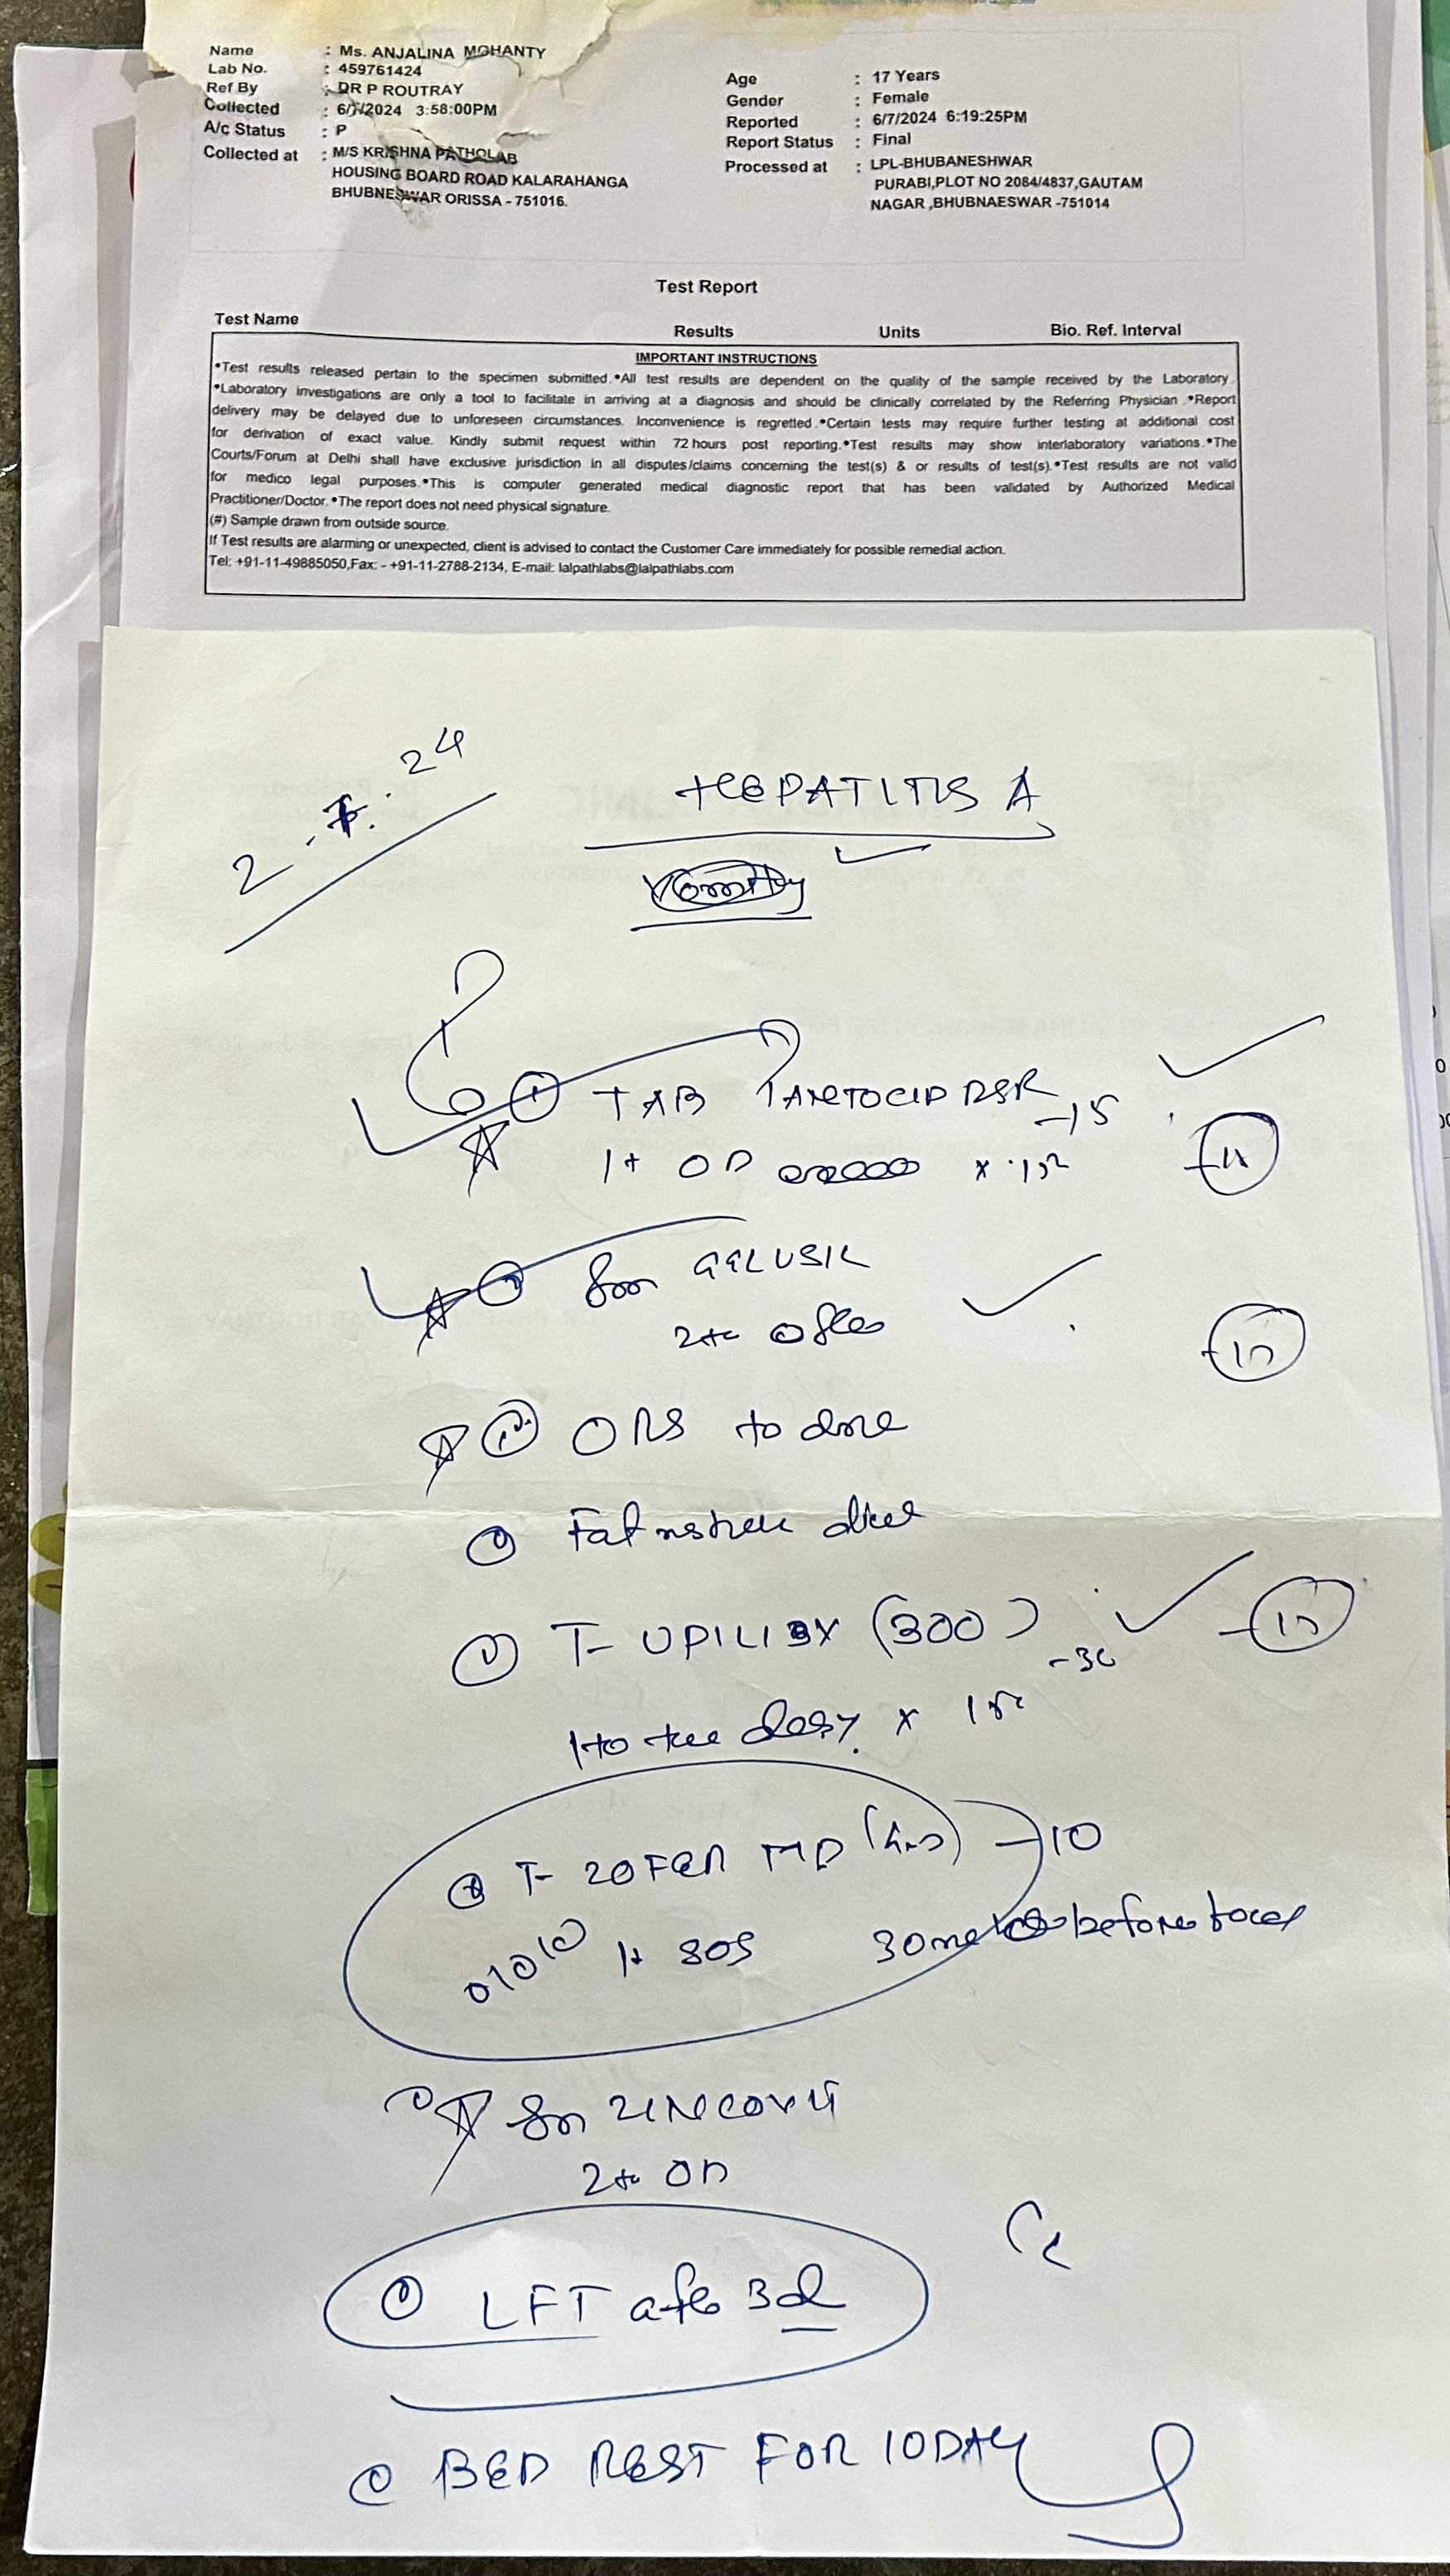 Name : Ms. ANJALINA MOHANTY
Lab No. : 459761424
Ref By : DR P ROUTRAY
Collected : 6/7/2024 3:58:00PM
A/c Status : P
Collected at : M/S KRISHNA PATHOLAB
HOUSING BOARD ROAD KALARAHANGA
BHUBNESWAR ORISSA - 751016.
Age : 17 Years
Gender : Female
Reported : 6/7/2024 6:19:25PM
Report Status : Final
Processed at : LPL-BHUBANESHWAR
PURABI,PLOT NO 2084/4837,GAUTAM
NAGAR ,BHUBNAESWAR -751014
Test Report
Test Name Results Units Bio. Ref. Interval
IMPORTANT INSTRUCTIONS
•Test results released pertain to the specimen submitted.•All test results are dependent on the quality of the sample received by the Laboratory.
•Laboratory investigations are only a tool to facilitate in arriving at a diagnosis and should be clinically correlated by the Referring Physician .•Report
delivery may be delayed due to unforeseen circumstances. Inconvenience is regretted.•Certain tests may require further testing at additional cost
for derivation of exact value. Kindly submit request within 72 hours post reporting.•Test results may show interlaboratory variations.•The
Courts/Forum at Delhi shall have exclusive jurisdiction in all disputes/claims concerning the test(s) & or results of test(s).•Test results are not valid
for medico legal purposes.•This is computer generated medical diagnostic report that has been validated by Authorized Medical
Practitioner/Doctor.•The report does not need physical signature.
(#) Sample drawn from outside source.
If Test results are alarming or unexpected, client is advised to contact the Customer Care immediately for possible remedial action.
Tel: +91-11-49885050,Fax: - +91-11-2788-2134, E-mail: lalpathlabs@lalpathlabs.com
2.7.24
HEPATITIS A
TAB PANTOCID DSR -15
1t OD
GELUSIL
ORS to
Fat diet
T- UDILIV (300) -30
T- ZOFER MD -10
1t SOS 30 before food
ZINCOVIT
OD
LFT after 3d
BED REST FOR 10DAY